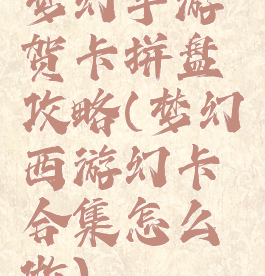 梦幻手游
贺卡拼盘
攻略(梦幻
西游幻卡
合集怎么